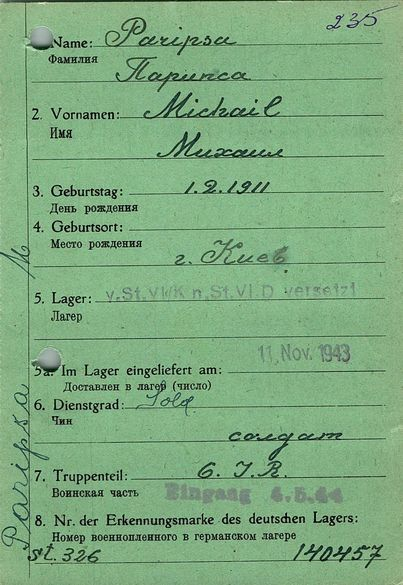 235
Name: Paripsa
Фамилия
Парипса
2. Vornamen: Michail
Имя
Михаил
3. Geburtstag: 1.2.1911
День рождения
4. Geburtsort:
Место рождения
г. Киев
5. Lager: v.St.VI/K n.St.VI D versetzt
Лагер
11. Nov. 1943
5a. Im Lager eingeliefert am:
Доставлен в лагер (число)
6. Dienstgrad: Sold.
Чин
солдат
7. Truppenteil: 6. J.R.
Воинская часть
Eingang 4.5.44
8. Nr. der Erkennungsmarke des deutschen Lagers:
Номер военнопленного в германском лагере
St. 326 140457
Paripsa M